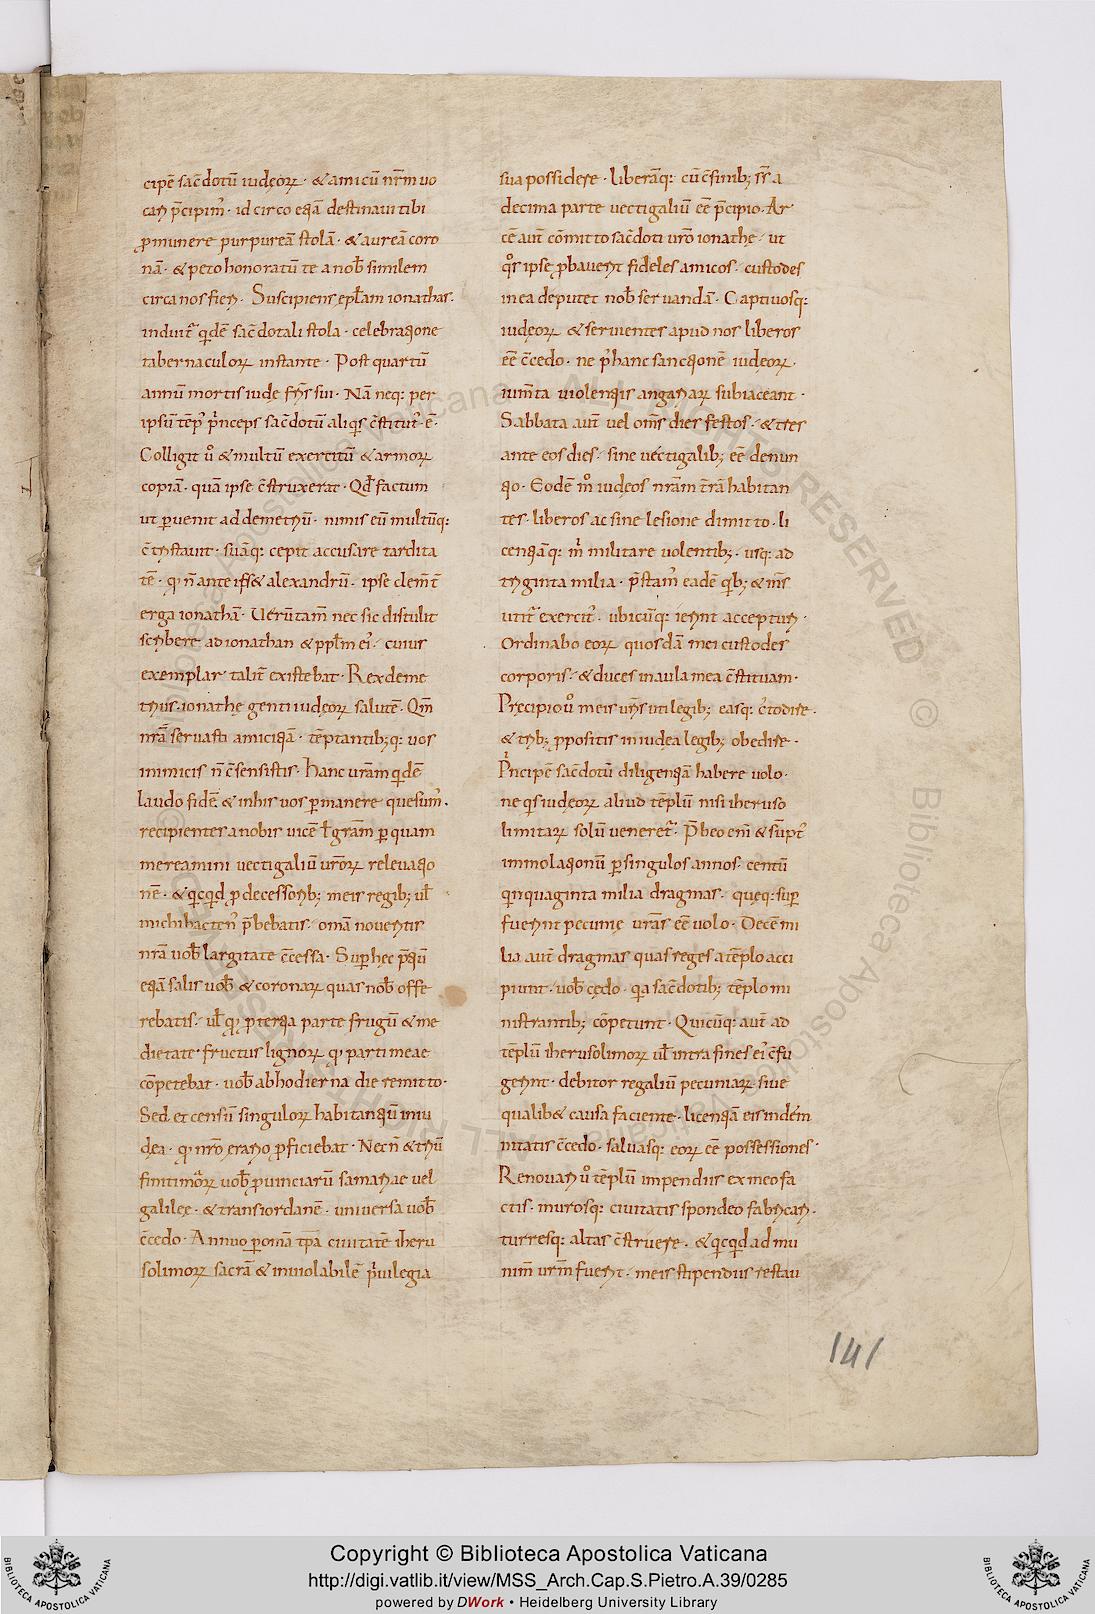 cipē sac̄dotū iudęoꝝ · & amicū nr̄m uo
cari p̄cipim᷒ · id circo etiā destinaui tibi
ꝓ munere purpureā stolā · & aureā coro
nā · & peto honoratū te a nob̄ similem
circa nos fieri · Suscipiens ep̄lam ionathas ·
induitr̄ qidē sac̄dotali stola · celebratione
tabernaculoꝝ instante · Post quartū
annū mortis iude fr̄is sui · Nā neq: per
ipsū tēp᷒ p̄nceps sac̄dotū aliqis c̄stitut᷒ ē ·
Colligit ů & multū exercitū & armoꝝ
copiā · quā ipse c̄struxerat · Qd̄ factum
ut ꝑuenit ad demetriū · nimis eū multūq:
c̄tristauit · suāq: cepit accusare tardita
tē · qi n̄ ante ipsū & alexandrū · ipse clem̄t̄
erga ionathā · Uerūtam̄ nec sic distulit
scribere ad ionathan & ppl̄m ei᷒ · cuius
exemplar talit̄ existebat · Rex deme
trius · ionathę genti iudęoꝝ salutē · Qm̄
nr̄ā seruasti amicitiā · tēptantib;q: uos
inimicis n̄ c̄sensistis · hanc ur̄am qidē
laudo fidē & in his uos ꝑmanere quesum᷒ ·
recipientes a nobis uicē ł gr̄am ꝑ quam
mereamini uectigaliū ur̄oꝝ relevatio
nē · & qicqid ꝓdecessorib; meis regib; ul̄
michi hacten᷒ p̄bebatis · om̄a noueritis
nr̄a uob̄ largitate c̄cessa · Suꝑ hęc p̄tiū
etiā salis uob̄ & coronaꝝ quas nob̄ offe
rebatis · ul̄ qi ꝓ tertia parte frugū & me
dietate fructus lignoꝝ qi parti meae
cōpetebat · uob̄ ab hodierna die remitto ·
Sed et censū singuloꝝ habitantiū in iu
dęa · qi nr̄o erario ꝓficiebat · Necn̄ & triū
finitimaꝝ uob̄ ꝓuinciarū samariae uel
galilęę · & transiordanē · uniuersa uob̄
c̄cedo · Annuo ꝑ om̄a tp̄a ciuitatē iheru
solimoꝝ sacrā & inuiolabilē p̄uilegia
sua possidere · liberāq: cū c̄finib; sr̄ a
decima parte uectigaliū eē p̄cipio · Ar
cē aut̄ cōmitto sac̄doti ur̄o ionathe · ut
qo̊s ipse ꝓbauerit fideles amicos · custodes
in ea deputet nob̄ seruandā · Captiuosq:
iudęoꝝ & seruientes apud nos liberos
eē c̄cedo · ne p᷒ hanc sanctionē iudęoꝝ ·
ium̄ta uiolentiis angariaꝝ subiaceant ·
Sabbata aut̄ uel om̄s dies festos · & tres
ante eos dies · sine uectigalib; eē denun
tio · Eodē m̊ iudęos nr̄am t̄rā habitan
tes · liberos ac sine lesione dimitto · li
centiāq: m̄ militare uolentib; · usq: ad
triginta milia · p̄stam᷒ eadē qib; & nr̄s
utitr̄ exercit᷒ · ubicūq: ierint accepturi ·
Ordinabo eoꝝ quosdā mei custodes
corporis · & duces in aula mea c̄stituam ·
Pręcipio ů meis uris uti legib; easq: c᷒todire ·
& trib; ꝓpositis in iudea legib; obedire ·
P̄ncipē sac̄dotū diligentiā habere uolo ·
ne qis iudęoꝝ aliud tēplū nisi iheruso
limitaꝝ solū ueneretr̄ · P̄beo em̄ & sūpt᷒
immolationū ꝑ singulos annos · centū
qinquaginta milia dragmas · quęq: suꝑ
fuerint pecunię ur̄as eē uolo · Decē mi
lia aut̄ dragmas quas reges a tēplo acci
piunt · uob̄ cędo · qia sac̄dotib; tēplo mi
nistrantib; cōpetunt · Quicūq: aut̄ ad
tēplū iherusolimoꝝ ul̄ intra fines ei᷒ c̄fu
gerint · debitor regaliū pecuniaꝝ siue
qualib& causa faciente · licentiā eis indēm
nitatis c̄cedo · saluasq: eoꝝ eē possessiones ·
Renouari ů tēplū impendiis ex meo fa
ctis · murosq: ciuitatis spondeo fabricari ·
turresq: altas c̄struere · & qicqid ad mu
nim̄ ur̄m fuerit · meis stipendiis restau
141
Copyright © Biblioteca Apostolica Vaticana
http://digi.vatlib.it/view/MSS_Arch.Cap.S.Pietro.A.39/0285
powered by DWork • Heidelberg University Library